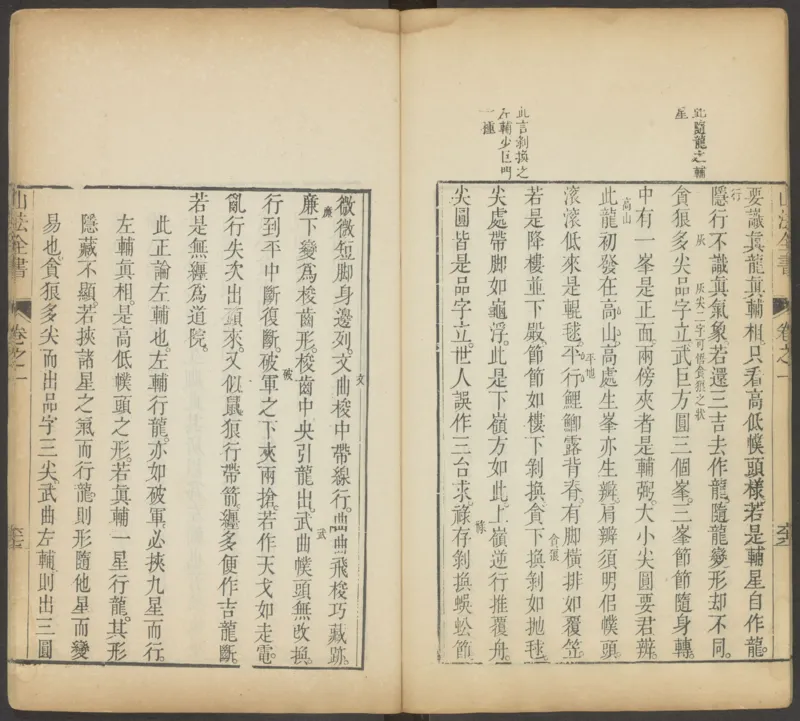 此隨龍之輔
星
此言剝換之
左輔少巨門
一種
要識眞龍眞輔相。只看高低幞頭樣。若是輔星自作龍。
行
隱行不識眞氣象。若還三吉去作龍。隨龍變形却不同。
辰
辰尖二字可悟貪狼之狀
貪狼多尖品字立。武巨方圓三個峯。三峯節節隨身轉。
中有一峯是正面。兩傍夾者是輔弼。大小尖圓要君辨。
高山
此龍初發在高山。高處生峯亦生辨。肩辨須明侶幞頭。
平地
滚滚低來是輥毬。平行鯉鯽露背脊。有脚橫排如覆笠。
若是降樓並下殿。節節如樓下剝換。貪下換剝如抛毬。
貪狼
尖處帶脚如龜浮。此是下嶺方如此。上嶺逆行推覆舟。
祿
尖圓皆是品字立。世人誤作三台求。祿存剝換蜈蚣節。
微微短脚身邊列。文曲梭中帶線行。曲曲飛梭巧藏跡。
文
廉
廉下變爲梭齒形。梭齒中央引龍出。武曲幞頭無改換。
武
破
行到平中斷復斷。破軍之下夾兩搶。若作天戈如走電。
亂行失次出頭來。又似鼠狼行帶箭。纏多便作吉龍斷。
若是無纏爲道院。
此正論左輔也。左輔行龍。亦如破軍。必挾九星而行。
左輔眞相。是高低幞頭之形。若眞輔一星行龍。其形
隱藏不顯。若挾諸星之氣而行龍。則形隨他星而變
易也。貪狼多尖而出品字三尖。武曲左輔則出三圓
山法全書
卷之一